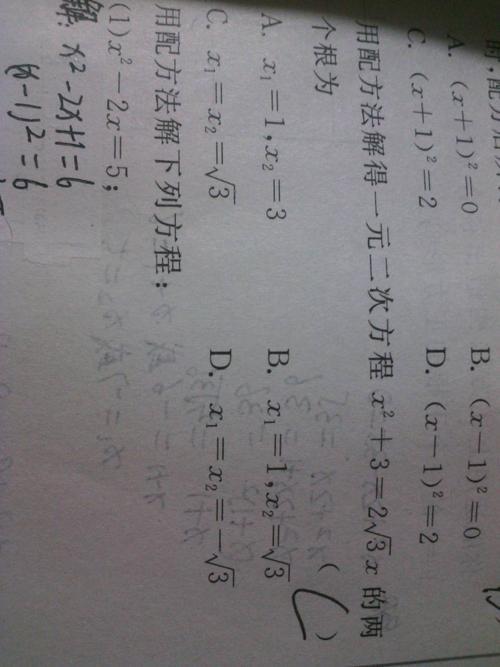 时,配方后
A. (x+1)²=0 B. (x-1)²=0
C. (x+1)²=2 D. (x-1)²=2
用配方法解得一元二次方程 x²+3=2√3x 的两
个根为 ( C )
A. x₁=1,x₂=3 B. x₁=1,x₂=√3
C. x₁=x₂=√3 D. x₁=x₂=-√3
用配方法解下列方程:
(1)x²-2x=5;
解: x²-2x+1=6
(x-1)²=6